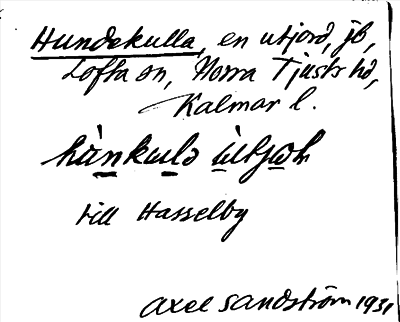 Hundekulla, en utjord, jb,
Lofta sn, Norra Tjusts hd,
Kalmar l.
till Hasselby
Axel Sandström 1931